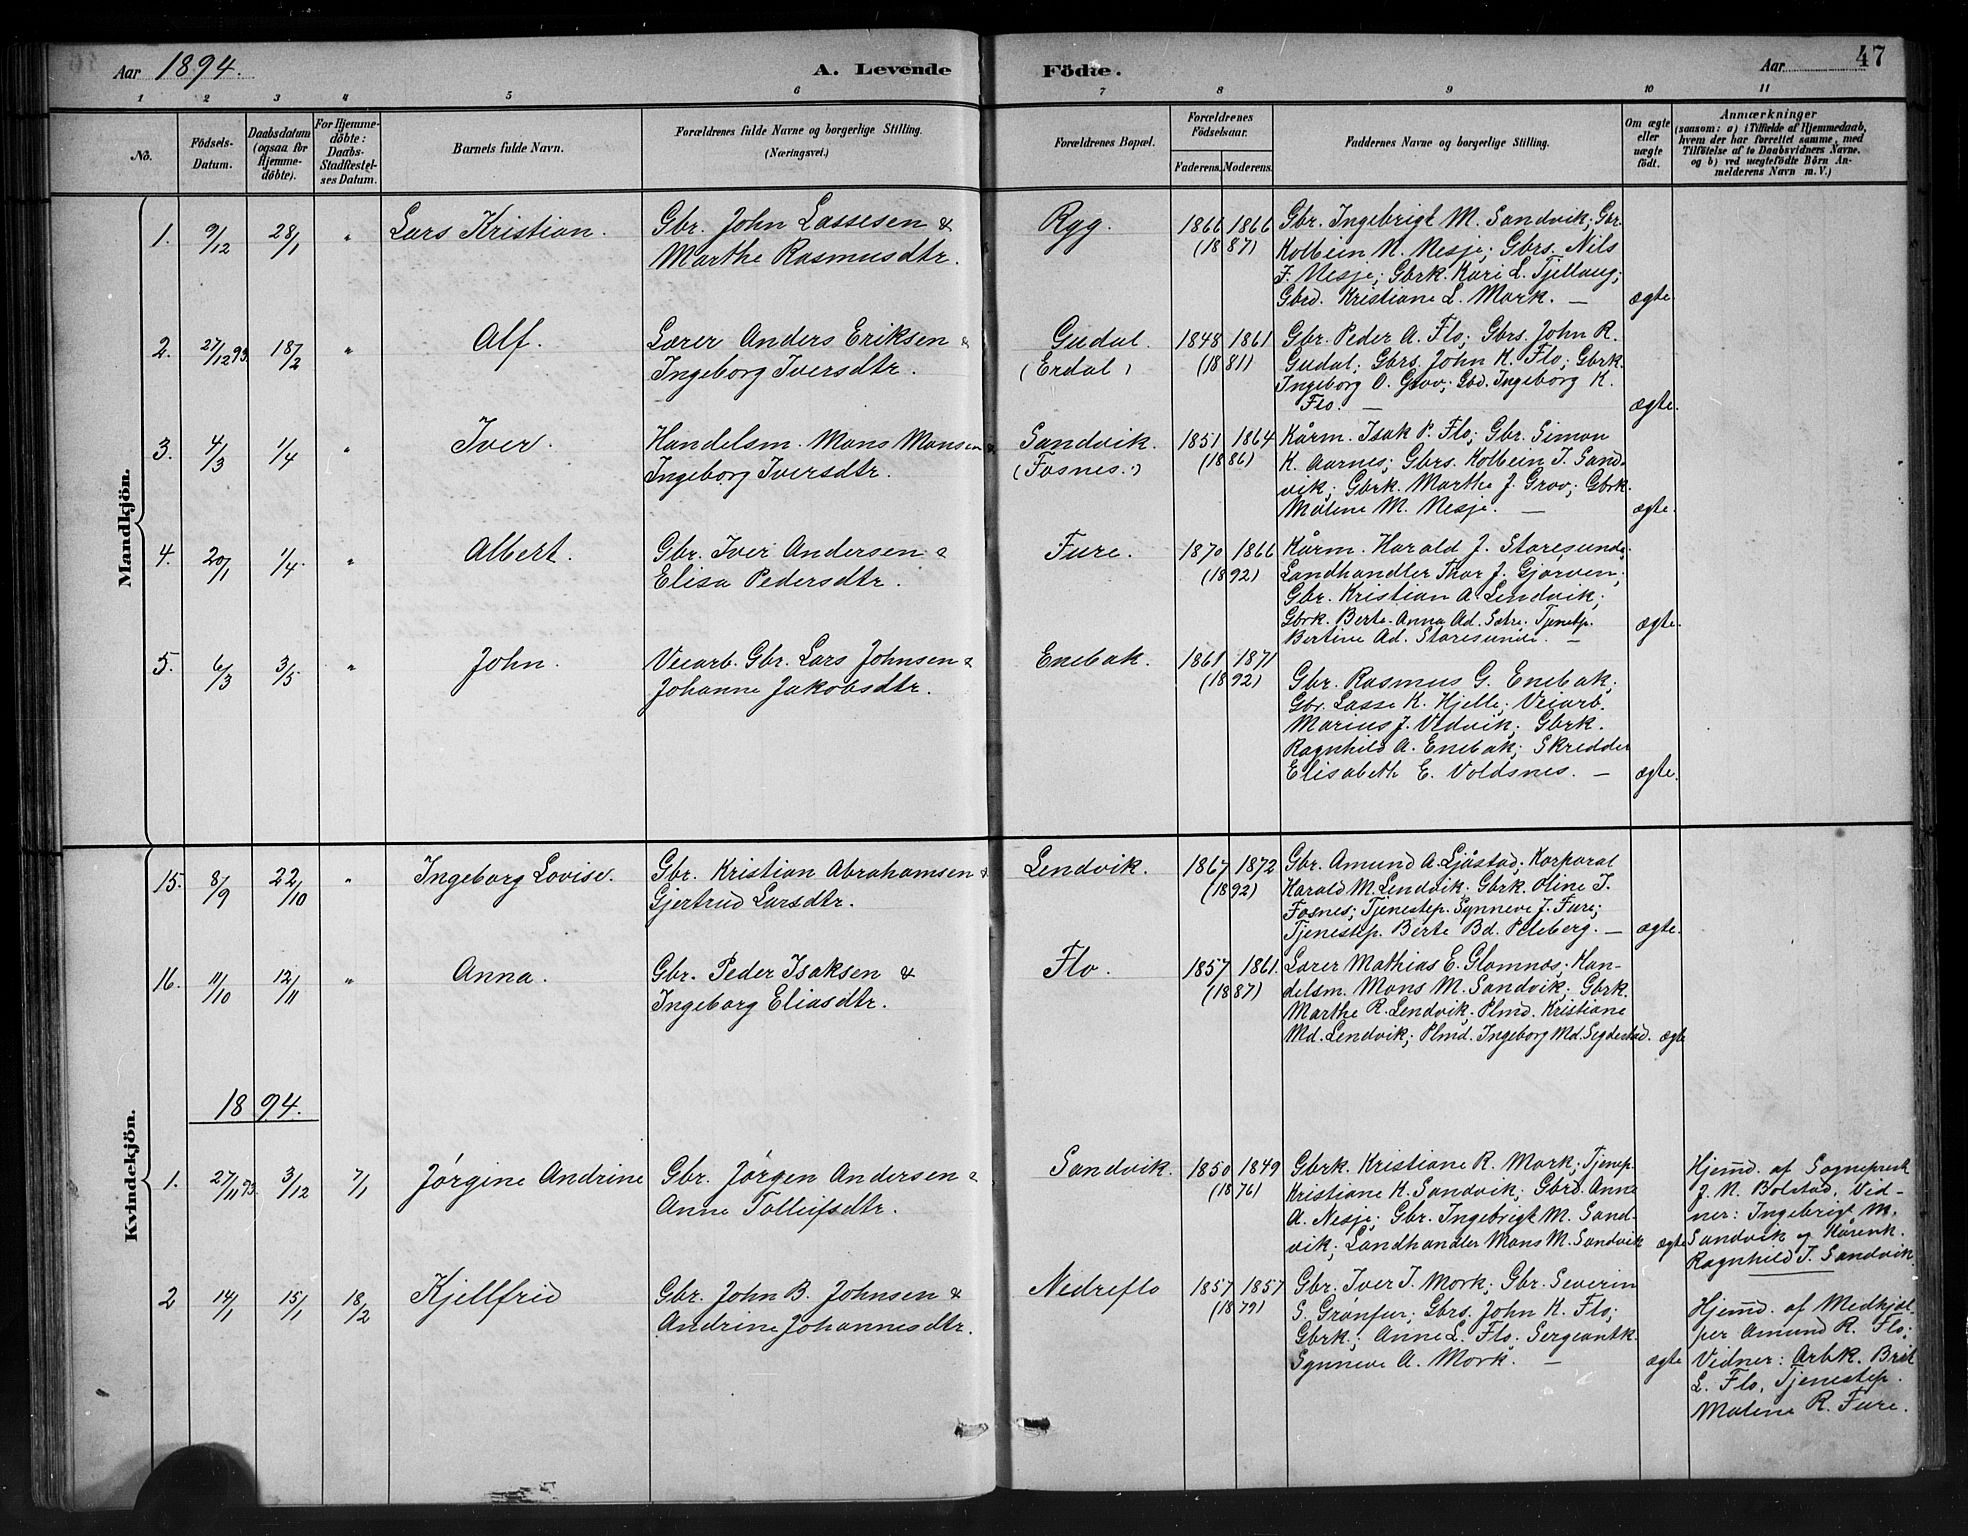 Aar 1894.
A. Levende Födte.
Aar 47
1 2 3 4 5 6 7 8 9 10 11
No.
Födsels-Datum.
Daabsdatum (ogsaa for Hjemme-döbte).
For Hjemme-döbte: Daabs-Stadfæstel-ses Datum.
Barnets fulde Navn.
Forældrenes fulde Navne og borgerlige Stilling.
(Næringsvei.)
Forældrenes Bopæl.
Forældrenes Födselsaar.
Faderens. Moderens.
Faddernes Navne og borgerlige Stilling.
Om ægte eller uægte födt.
Anmærkninger
(saasom: a) i Tilfælde af Hjemmedaab,
hvem der har forrettet samme, med
Tilföielse af to Daabsvidners Navne.
og b) ved uægtefödte Börn An-
melderens Navn m. V.)
Mandkjön.
1. 9/12 28/1 " Lars Kristian. Gbr. John Lassesen &
Marthe Rasmusdtr.
Rygg. 1866 1866
(1887)
Gbr. Ingebrigt M. Sandvik; Gbr.
Kolbein N. Nesje; Gbrs. Nils
J. Nesje; Gbrk. Kari L. Tjellaug;
Gbrd. Kristiane L. Mork. — ægte.
2. 27/12 93. 18/2 " Alf. Lærer Anders Eriksen &
Ingeborg Iversdtr.
Gudal. 1848 1861
(Erdal) (1881)
Gbr. Peder A. Flo; Gbrs. John R.
Gudal; Gbrs. John K. Flo; Gbrk.
Ingeborg O. Grov; Gbd. Ingeborg K.
Flo. — ægte.
3. 4/3 1/4 " Iver. Handelsm. Mons Monsen &
Ingeborg Iversdtr.
Sandvik. 1851 1864
(Fosnes.) (1886)
Kårm. Isak P. Flo; Gbr. Simon
K. Aarnes; Gbrs. Kolbein I. Sand-
vik; Gbrk. Marthe J. Grov; Gbrk.
Malene M. Nesje. — ægte.
4. 20/1 1/4. " Albert. Gbr. Iver Andersen &
Elisa Pedersdtr.
Fure. 1870 1866
(1892)
Kårm. Harald J. Storesunde;
Landhandler Thor J. Gjorven;
Gbr. Kristian A. Lendvik;
Gbrk. Berte-Anna Ad. Sætre; Tjenestp.
Bertine Ad. Storesunde. — ægte.
5. 6/3 3/5 " John. Veiarb. Gbr. Lars Johnsen &
Johanne Jakobsdtr.
Enebak. 1861 1871
(1892)
Gbr. Rasmus G. Enebak;
Gbr. Lasse K. Hjelle; Veiarb.
Marius J. Vedvik; Gbrk.
Ragnhild A. Enebak; Skredder
Elisabeth E. Voldsnes. — ægte.
Kvindekjön.
15. 8/9 22/10 " Ingeborg Lovise. Gbr. Kristian Abrahamsen &
Gjertrud Larsdtr.
Lendvik. 1867 1872
(1892)
Gbr. Amund A. Ljåstad; Korporal
Harald M. Lendvik. Gbrk. Oline I.
Fosnes; Tjenestep. Synneve J. Fure;
Tjenestep. Birte Bd. Peleberg. — ægte.
16. 11/10 12/11 " Anna. Gbr. Peder Isaksen &
Ingeborg Eliasdtr.
Flo. 1857 1861.
(1887)
Lærer Mathias E. Glomnes; Han-
delsm. Mons M. Sandvik; Gbrk.
Marthe R. Lendvik. Plmd. Kristiane
Md. Lendvik; Plmd. Ingeborg Md. Segdestad. ægte
1894.
1. 27/11 93. 3/12 7/1 Jørgine Andrine Gbr. Jørgen Andersen &
Anne Tolleifsdtr.
Sandvik. 1850 1849
(1876)
Gbrk. Kristiane R. Mork; Tjenep.
Kristiane K. Sandvik; Gbrd. Anne
A. Nesje; Gbr. Ingebrigt M. Sand-
vik; Landhandler Mons M. Sandvik ægte
Hjemd. af Sogneprest
J. N. Bolstad. Vid-
ner: Ingebrigt M.
Sandvik og Kårenk.
Ragnhild I. Sandvik
2 14/1 15/1 18/2 Kjellfrid Gbr. John B. Johnsen &
Andrine Johannesdtr.
Nedreflo 1857 1857
(1879)
Gbr. Iver I. Mork; Gbr. Severin
S. Grønfur; Gbrs. John K. Flo;
Gbrk. Anne L. Flo; Sergeantk.
Synneve A. Mork. — ægte
Hjemd. af Medhjæl-
per Amund R. Flo;
Vidner: Arbk. Brit
L. Flo, Tjenestep.
Malene R. Fure.